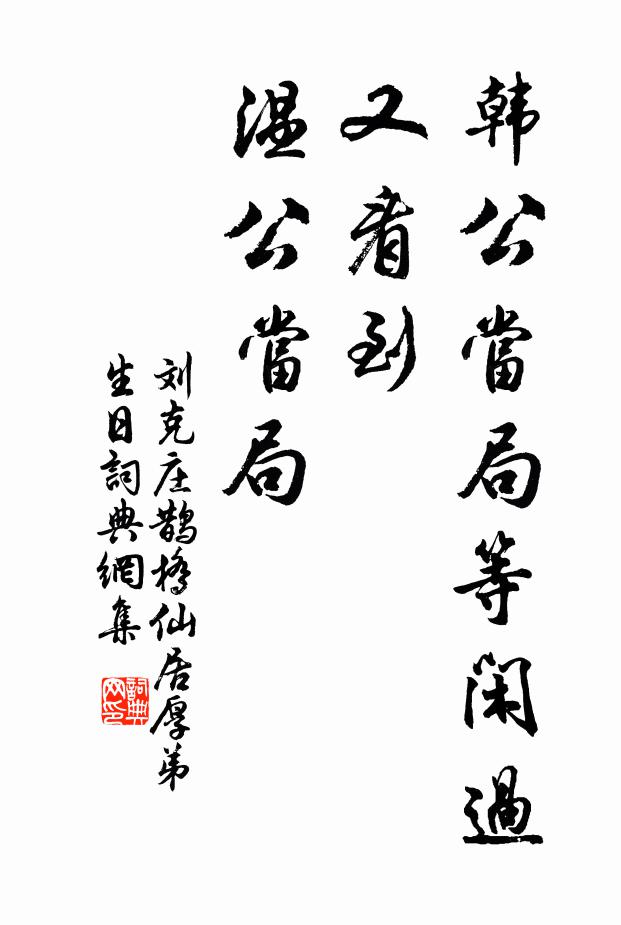 韩公當局等闲過
又看到
温公當局
刘克庄鹊橋仙居厚弟
生日詞典網集
詞典
网印